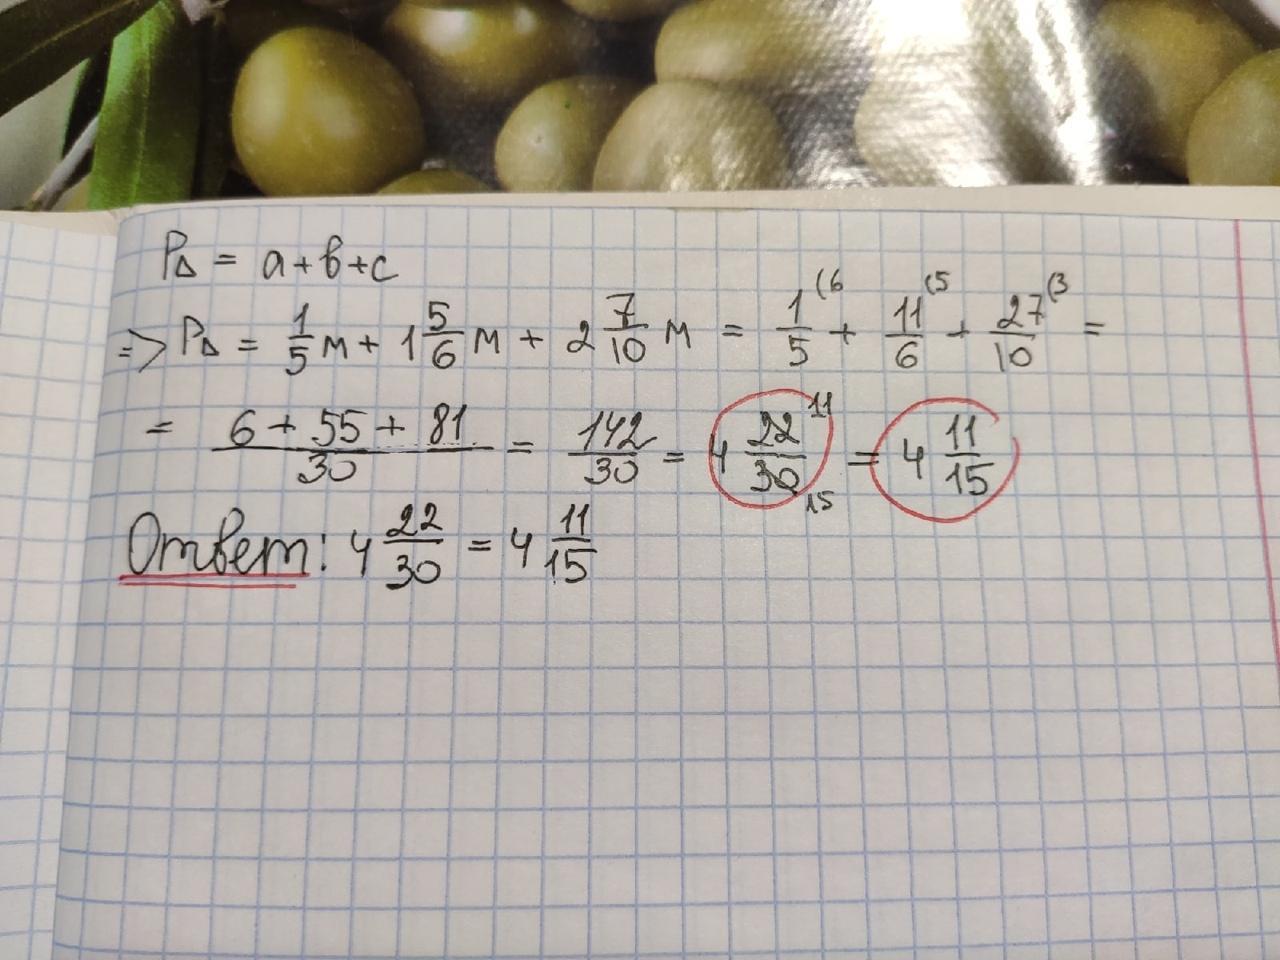 P∆ = a+b+c
=> P∆ = 1/5 м + 1 5/6 м + 2 7/10 м = 1/5 (6 + 11/6 (5 + 27/10 (3 =
= 6 + 55 + 81/30 = 142/30 = 4 22/30 11 15 = 4 11/15
Ответ: 4 22/30 = 4 11/15